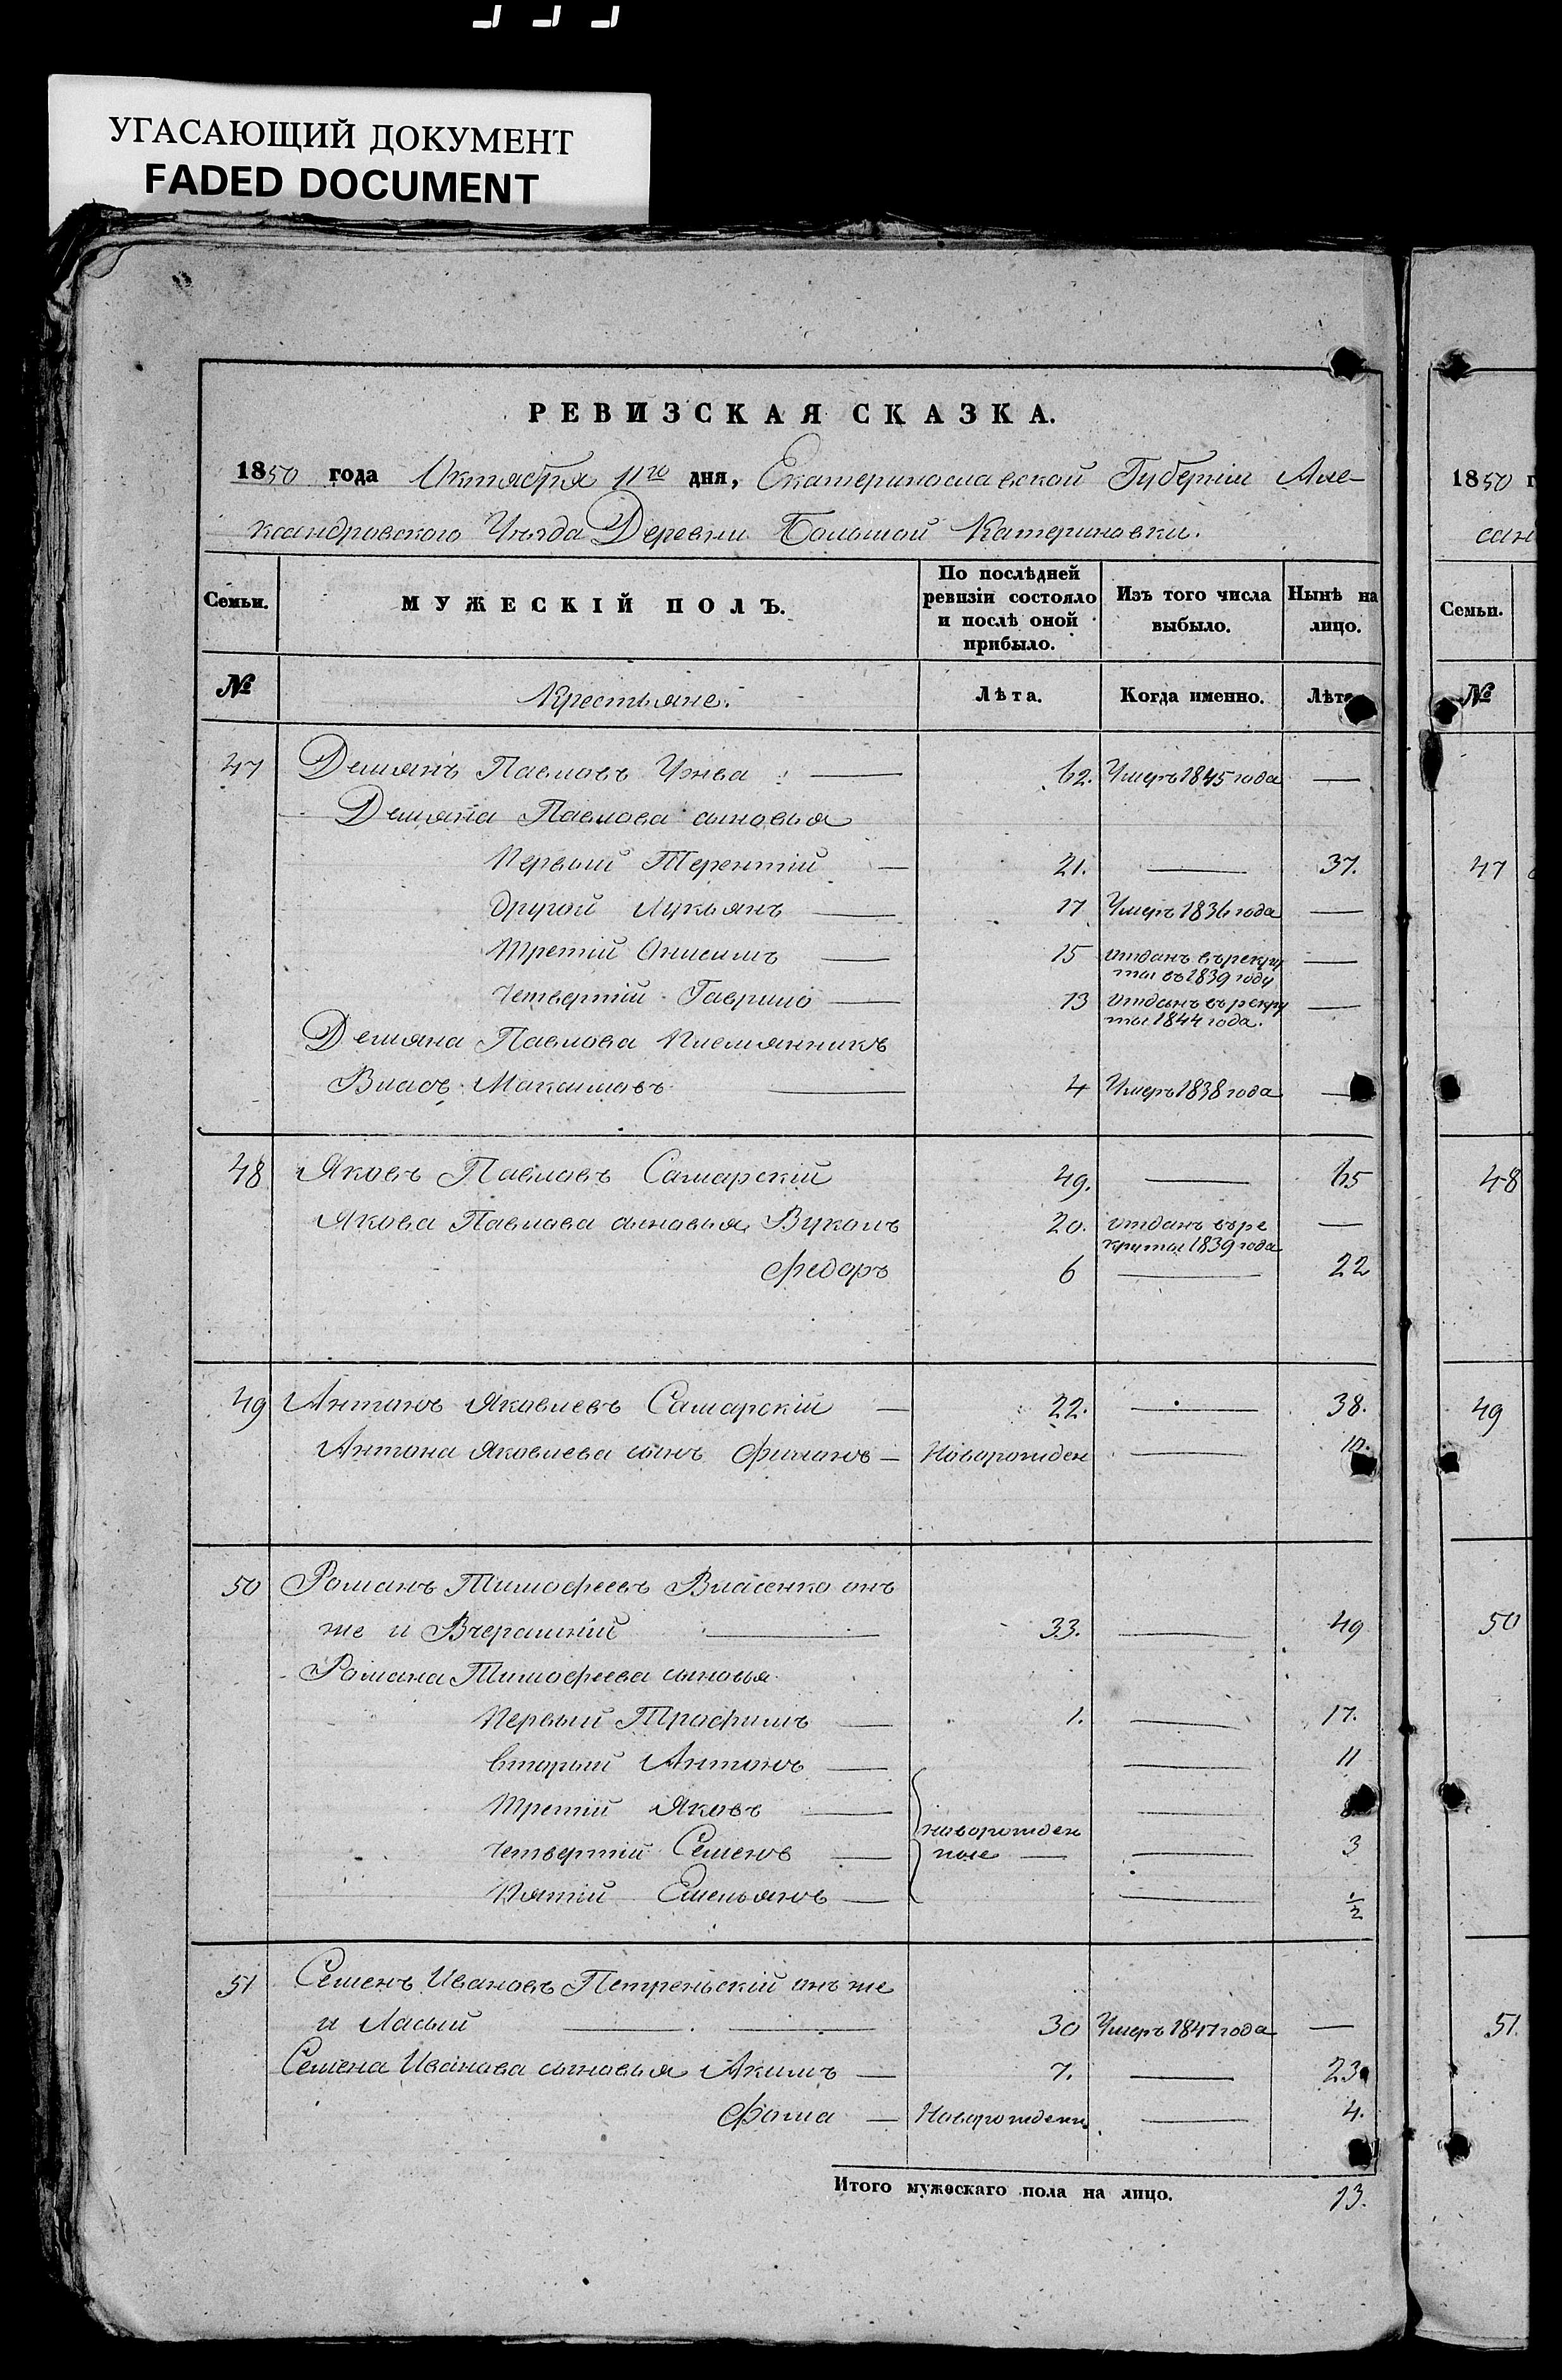 УГАСАЮЩИЙ ДОКУМЕНТ
FADED DOCUMENT
РЕВИЗСКАЯ СКАЗКА.
1850 года Октября 11го дня, Екатеринославской Губерніи Але-
ксандровского Уѣзда Деревни Большой Катериновки.
Семьи. МУЖЕСКІЙ ПОЛЪ. По послѣдней ревизіи состояло и послѣ оной прибыло. Изъ того числа выбыло. Нынѣ на лицо.
№ Крестьяне. Лѣта. Когда именно. Лѣта
47 Демьянъ Павловъ 62. Умеръ 1845 года —
Демяна Павлова сыновья
Первый Терентій — 21. — 37.
другой Лукьянъ — 17 Умеръ 1836 года —
Третій Онисимъ — 15 отданъ въ рекру
ты въ 1839 году —
Четвертій Гаврило — 13 отданъ въ рекру
ты 1844 года. —
Демяна Павлова Племянникъ
Власъ Максимовъ — 4 Умеръ 1838 года —
48 Яковъ Павловъ Самарскій 49. — 65
Якова Павлова сыновья Вуколъ 20. отданъ въ ре
круты 1839 года —
Федоръ 6 — 22
49 Антонъ Яковлевъ Самарскій — 22. — 38.
Антона Яковлева сынъ Филонъ — Новорожден — 10.
50 Романъ Тимофеевъ Власенко онъ
же и Вчерашній — 33. — 49
Романа Тимофеева сыновья
Первый Трофимъ — 1. — 17.
вторый Антонъ — — 11
Третій Яковъ — новорожден —
Четвертій Семенъ — ные — — 3
Пятій Емельянъ — — 1/2
51 Семенъ Ивановъ Петреньскій онъ же
и Ласый — — 30 Умеръ 1847 года —
Семена Иванова сыновья Акимъ — 7. — 23
Фома — Новорожденн. — 4.
Итого мужескаго пола на лицо. 13.
1850 г
сан
Семьи.
№
47
48
49
50
51.